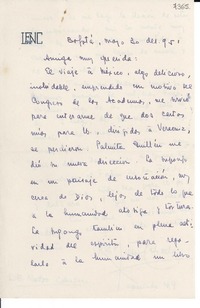 7365
Bogotá, mayo 20 de 1951
Amiga muy querida:
El viaje a México, algo delicioso,
inolvidable, emprendido con motivo del
Congreso de las Academias, me sirvió
para enterarme de que dos cartas
mías para Ud., dirigidas a Veracruz,
se perdieron. Palmita Guillén me
dió su nueva dirección. La supongo
en un paisaje de ensoñación, muy
cerca de Dios, lejos de todo lo que
a la humanidad atosiga y tortura.
La supongo también en plena acti-
vidad del espíritu, para rega-
larle a la humanidad un libro